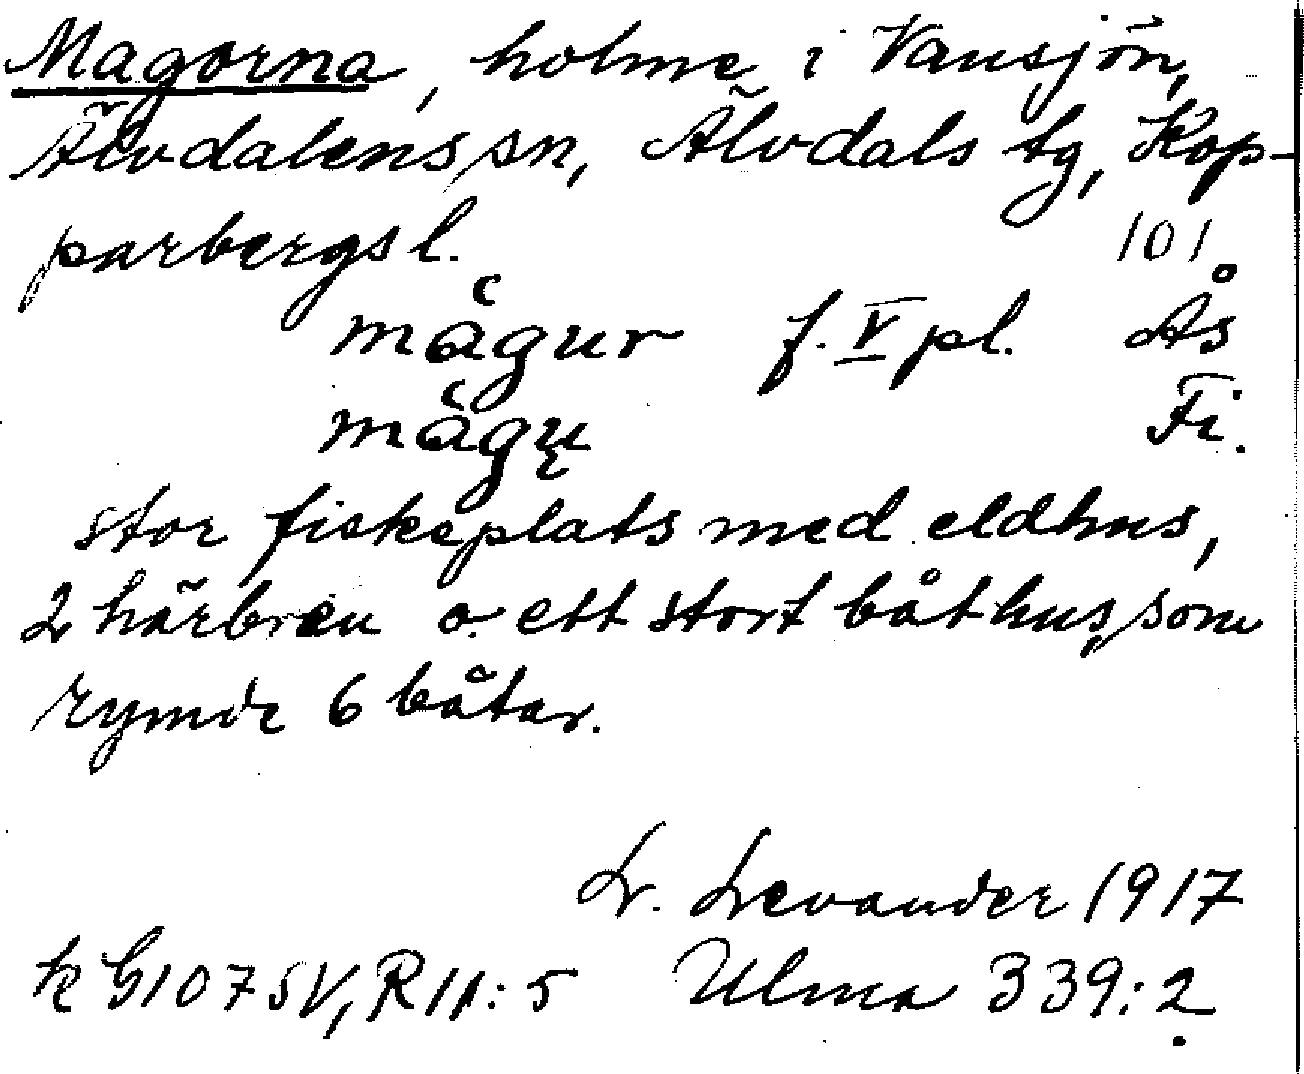 Magorna, holme i Vansjön,
Älvdalens sn, Älvdals tg, Kop-
parbergs l. 101
mågur f. V pl. Ås
mågų Fi.
stor fiskeplats med eldhus,
2 härbren o. ett stort båthus, som
rymde 6 båtar.
L. Levander 1917
k G107 SV, R11:5 Ulma 339:2